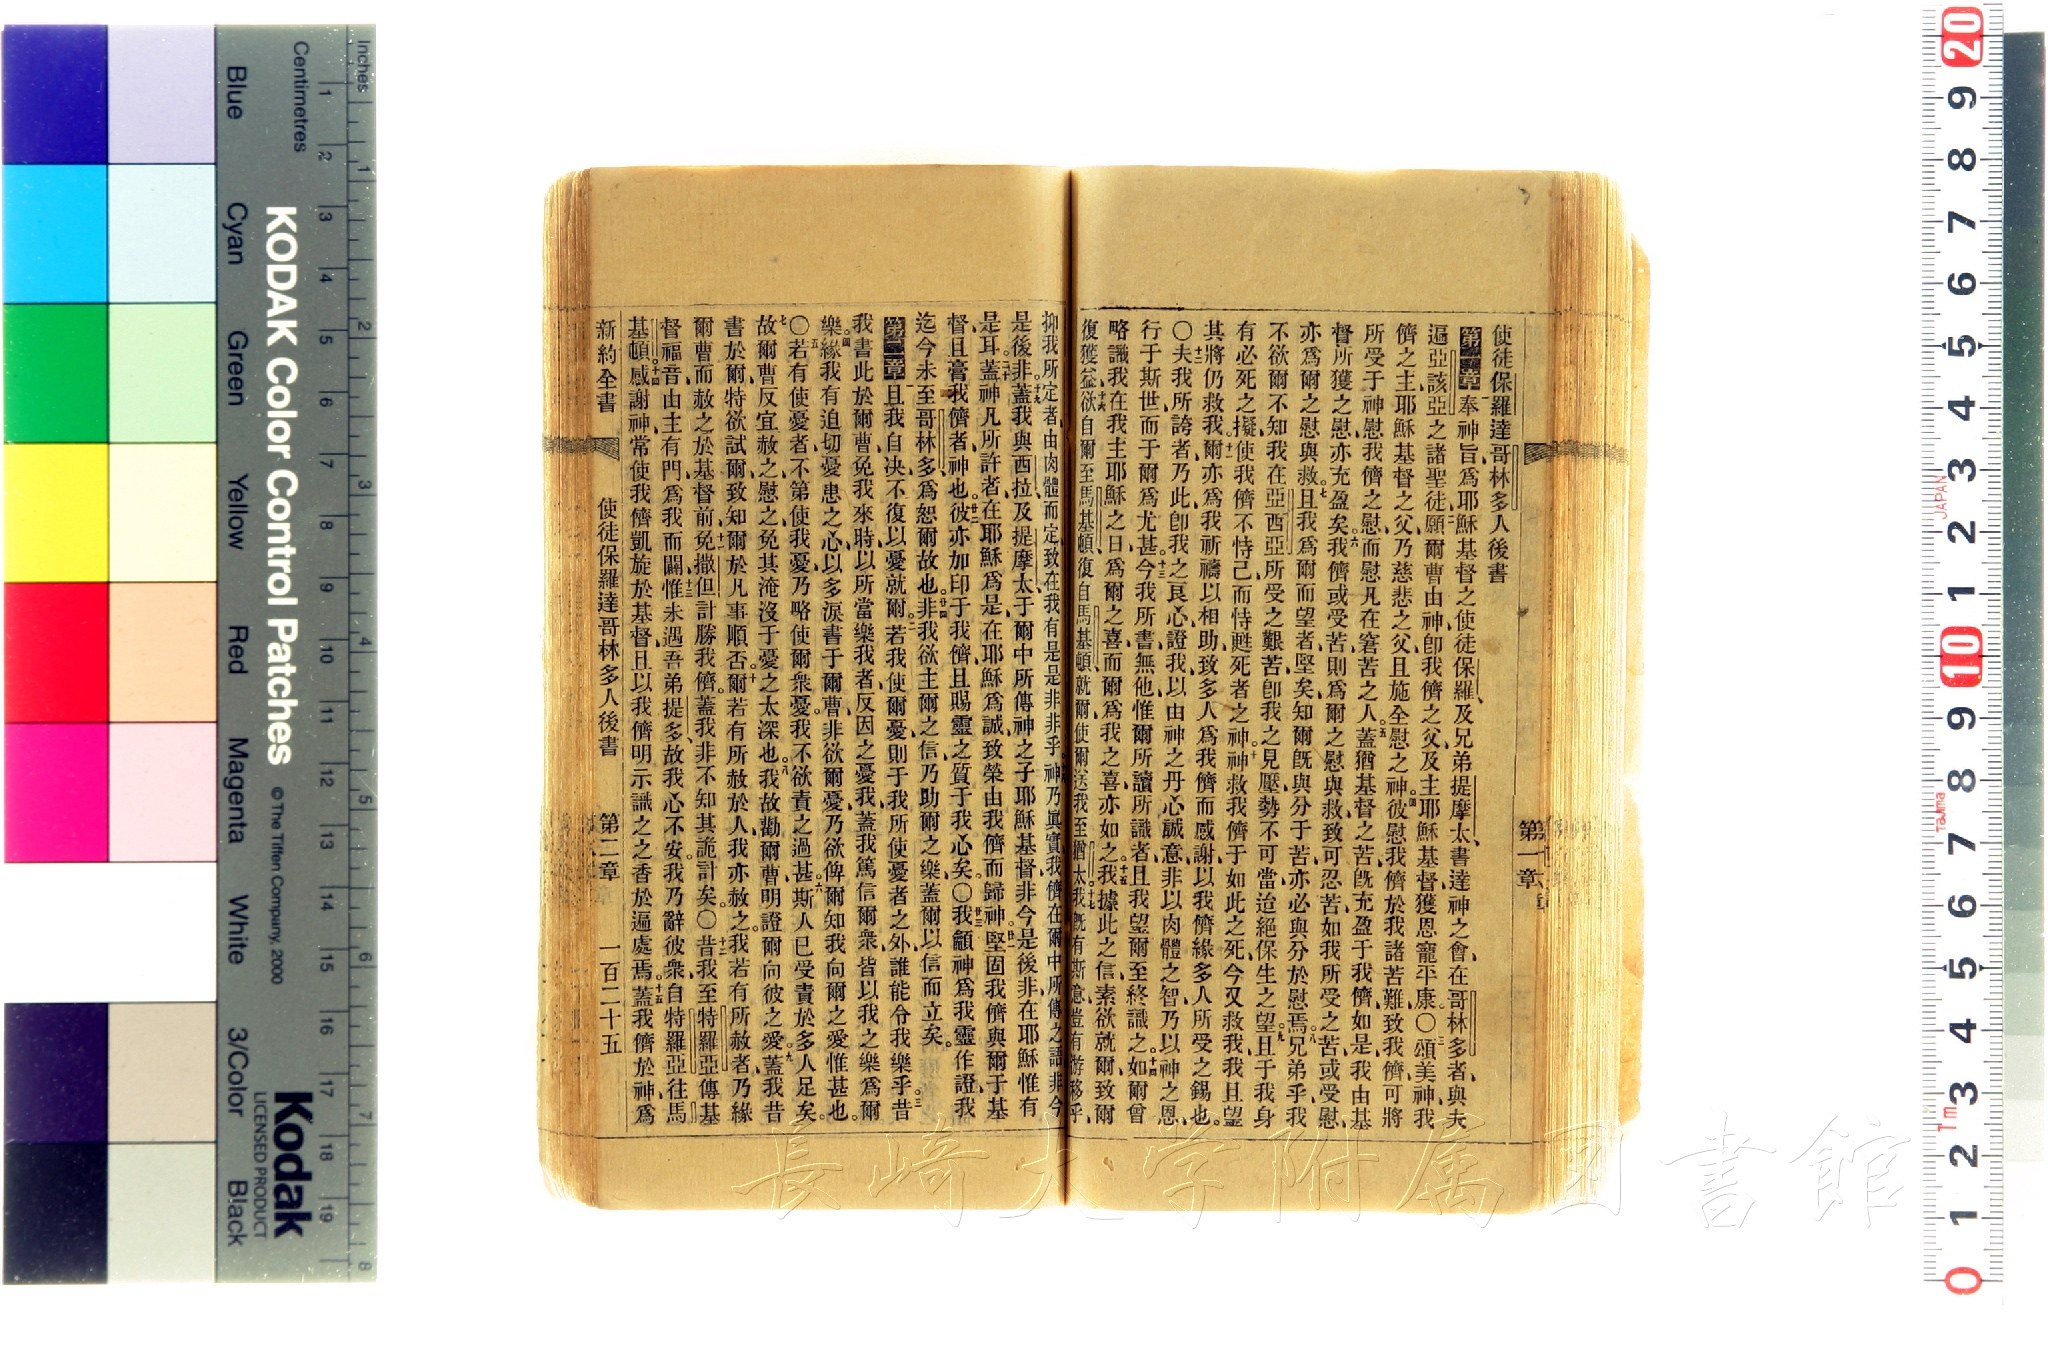 使徒保羅達哥林多人後書
第一章奉神旨爲耶穌基督之使徒保羅及兄弟提摩太書達神之會在哥林多者與夫
遍亞該亞之諸聖徒願爾曹由神卽我儕之父及主耶穌基督獲恩寵平康〇頌美神我
儕之主耶穌基督之父乃慈悲之父且施全慰之神彼慰我儕於我諸苦難致我儕可將
所受于神慰我儕之慰而慰凡在窘苦之人蓋猶基督之苦旣充盈于我儕如是我由基
督所獲之慰亦充盈矣我儕或受苦則爲爾之慰與救致可忍苦如我所受之苦或受慰
亦爲爾之慰與救且我爲爾而望者堅矣知爾旣與分于苦亦必與分於慰焉兄弟乎我
不欲爾不知我在亞西亞所受之艱苦卽我之見壓勢不可當迨絕保生之望且于我身
有必死之擬使我儕不恃己而恃甦死者之神神救我儕于如此之死今又救我我且望
其將仍救我爾亦爲我祈禱以相助致多人爲我儕而感謝以我儕緣多人所受之錫也
〇夫我所誇者乃此卽我之良心證我以由神之丹心誠意非以肉體之智乃以神之恩
行于斯世而于爾爲尤甚今我所書無他惟爾所讀所識者且我望爾至終識之如爾曾
略識我在我主耶穌之日爲爾之喜而爾爲我之喜亦如之我據此之信素欲就爾致爾
復獲益欲自爾至馬基頓復自馬基頓就爾使爾送我至猶太我旣有斯意豈有游移乎
第一章
抑我所定者由肉體而定致在我有是是非非乎神乃眞實我儕在爾中所傳之語非今
是後非蓋我與西拉及提摩太于爾中所傳神之子耶穌基督非今是後非在耶穌惟有
是耳蓋神凡所許者在耶穌爲是在耶穌爲誠致榮由我儕而歸神堅固我儕與爾于基
督且膏我儕者神也彼亦加印于我儕且賜靈之質于我心矣〇我籲神爲我靈作證我
迄今未至哥林多爲恕爾故也非我欲主爾之信乃助爾之樂蓋爾以信而立矣
第二章且我自决不復以憂就爾若我使爾憂則于我所使憂者之外誰能令我樂乎昔
我書此於爾曹免我來時以所當樂我者反因之憂我蓋我篤信爾衆皆以我之樂爲爾
樂緣我有迫切憂患之心以多淚書于爾曹非欲爾憂乃欲俾爾知我向爾之愛惟甚也
〇若有使憂者不第使我憂乃略使爾衆憂我不欲責之過甚斯人已受責於多人足矣
故爾曹反宜赦之慰之免其淹沒于憂之太深也我故勸爾曹明證爾向彼之愛蓋我昔
書於爾特欲試爾致知爾於凡事順否爾若有所赦於人我亦赦之我若有所赦者乃緣
爾曹而赦之於基督前免撒但計勝我儕蓋我非不知其詭計矣〇昔我至特羅亞傳基
督福音由主有門爲我而闢惟未遇吾弟提多故我心不安我乃辭彼衆自特羅亞往馬
基頓感謝神常使我儕凱旋於基督且以我儕明示識之之香於遍處焉蓋我儕於神爲
新約全書 使徒保羅達哥林多人後書 第二章 一百二十五
Inches
Centimetres
Blue Cyan Green Yellow Red Magenta White 3/Color Black
KODAK Color Control Patches © The Tiffen Company, 2000
Kodak
LICENSED PRODUCT
1 2 3 4 5 6 7 8 9 10 11 12 13 14 15 16 17 18 19
1 2 3 4 5 6 7 8
20 9 8 7 6 5 4 3 2 1 10 9 8 7 6 5 4 3 2 1 0
JAPAN
Tajima
Tm
長崎大学附属図書館